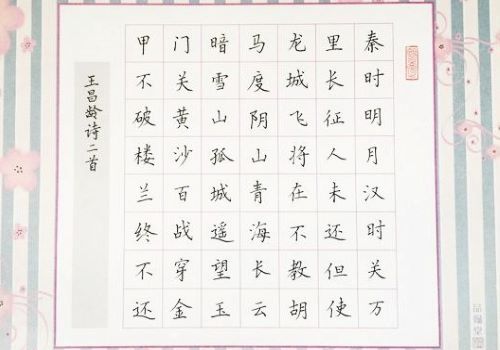 秦时明月汉时关万
里长征人未还但使
龙城飞将在不教胡
马度阴山青海长云
暗雪山孤城遥望玉
门关黄沙百战穿金
甲不破楼兰终不还
王昌龄诗二首